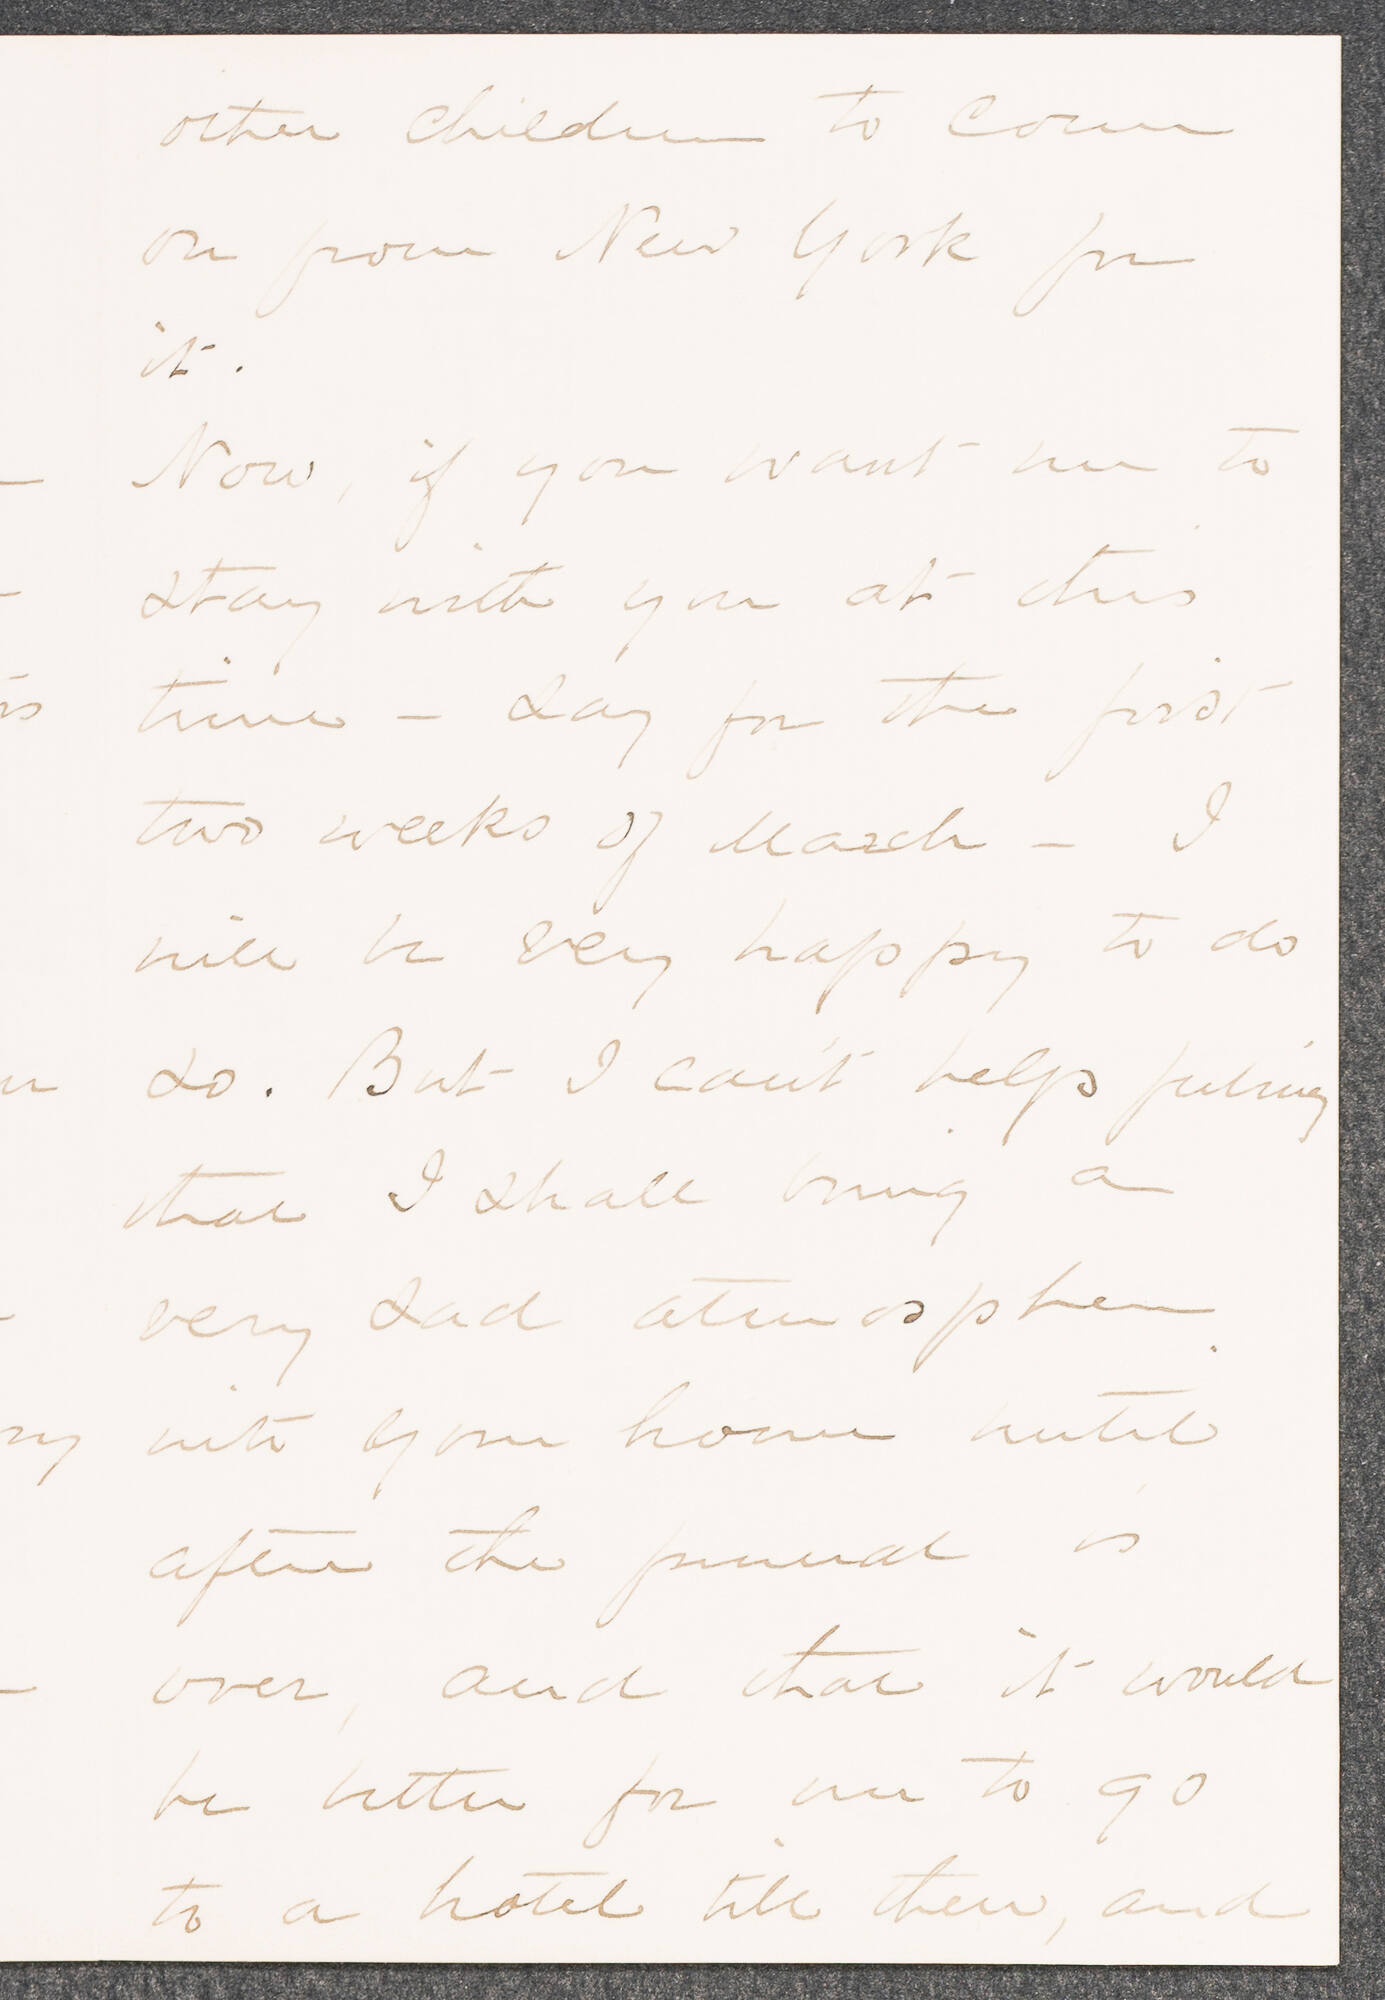 other children to come
on from New York for
it.
Now, if you want me to
stay with you at this
time - say for the first
two weeks of March - I
will be very happy to do
so. But I can't help feeling
that I shall bring a
very sad atmosphere
into your home until
after the funeral is
over, and that it would
be better for me to go
to a hotel till then, and